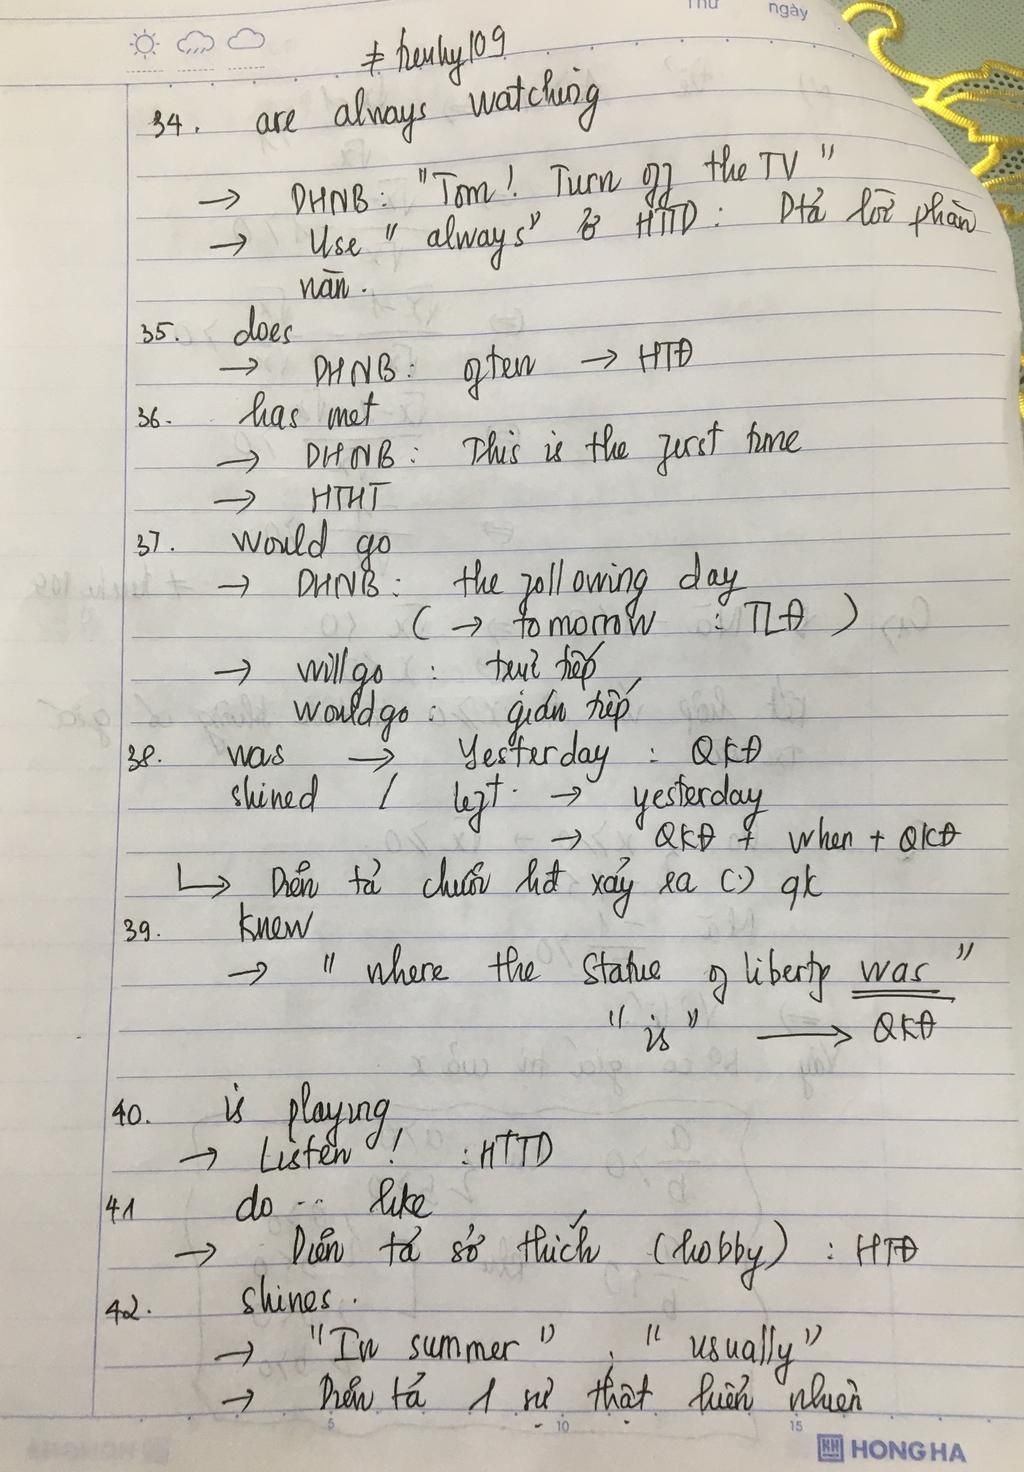 Thứ ngày
# henhy109
34. are always watching
→ DHNB: "Tom! Turn off the TV"
→ Use "always" ở HTTD: Dtả lời phàn
nàn.
35. does
→ DHNB: often → HTĐ
36. has met
→ DHNB: This is the first time
→ HTHT
37. would go
→ DHNB: the following day
( → tomorrow : TLĐ )
→ will go : trực tiếp
would go : gián tiếp
38. was → Yesterday : QKĐ
shined / left → yesterday
→ QKĐ + when + QKĐ
↳ Diễn tả chuỗi hđ xảy ra (-) qk
39. knew
→ "where the Statue of liberty was"
"is" → QKĐ
40. is playing
→ Listen! : HTTD
41 do ... like
→ Diễn tả sở thích (hobby) : HTĐ
42. shines.
→ "In summer", "usually"
→ Diễn tả 1 sự thật hiển nhiên
5 10 15
HH HONG HA